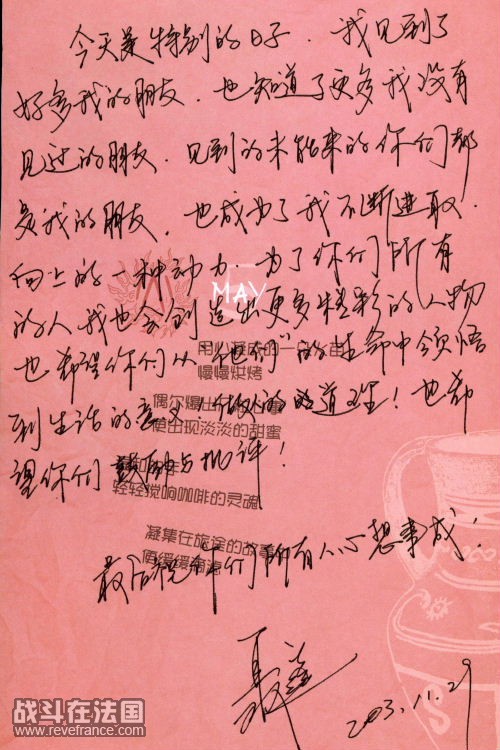 今天是特别的日子．我见到了
好多我的朋友．也知道了更多我没有
见过的朋友．见到的未能来的你们都
是我的朋友．也成为了我不断进取．
向上的一种动力．为了你们所有
MAY
的人我也会创造出更多精彩的人物
用心凝成的一
慢慢烘烤
也希望你们从"他们"的生命中领悟
偶尔爆出
到生活的意义！做人的道理！也希
便出现淡淡的甜蜜
望你们鼓励与批评！
轻轻搅响咖啡的灵魂
凝集在旅途的故事
便缓缓
最后祝你们所有人心想事成！
聂远
2003.11.29
战斗在法国
www.revefrance.com